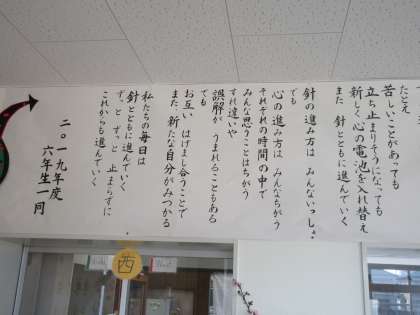 たとえ
苦しいことがあっても
立ち止まりそうになっても
新しく心の電池を入れ替え
また 針とともに進んでいく
針の進み方は みんないっしょ
心の進み方は みんなちがう
それぞれの時間の中で
みんな思うことはちがう
すれ違いや
誤解が うまれることもある
でも
お互い はげまし合うことで
また 新たな自分がみつかる
私たちの毎日は
針とともに進んでいく
ずっと ずっと 止まらずに
これからも進んでいく
二〇一九年度
六年生一同
西